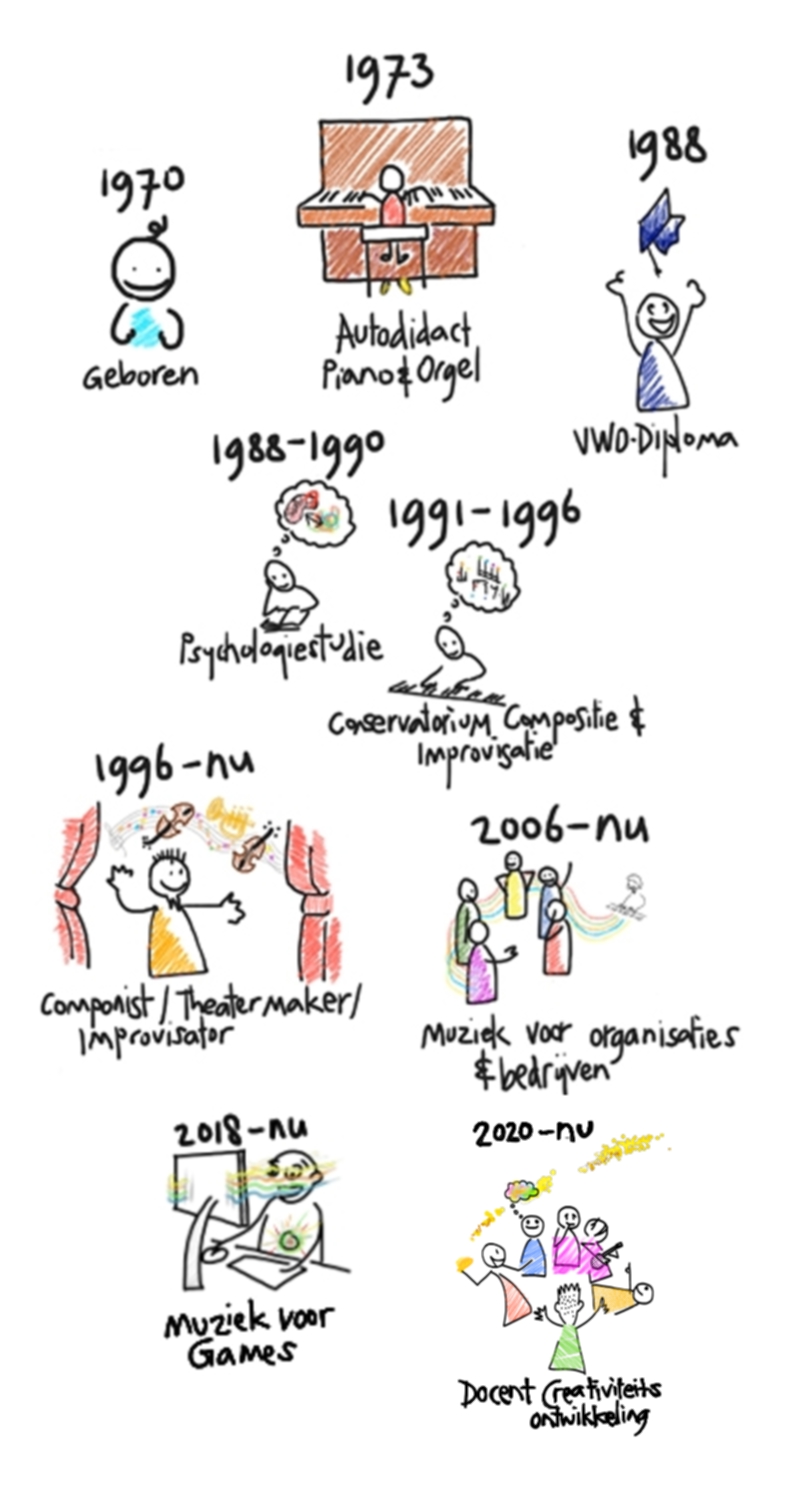 1970
Geboren
1973
Autodidact
Piano & Orgel
1988
VWO-Diploma
1988-1990
Psychologiestudie
1991-1996
Conservatorium Compositie &
Improvisatie
1996-nu
Componist / Theatermaker/
Improvisator
2006-nu
Muziek voor organisaties
& bedrijven
2018-nu
Muziek voor
Games
2020-nu
Docent Creativiteits
ontwikkeling